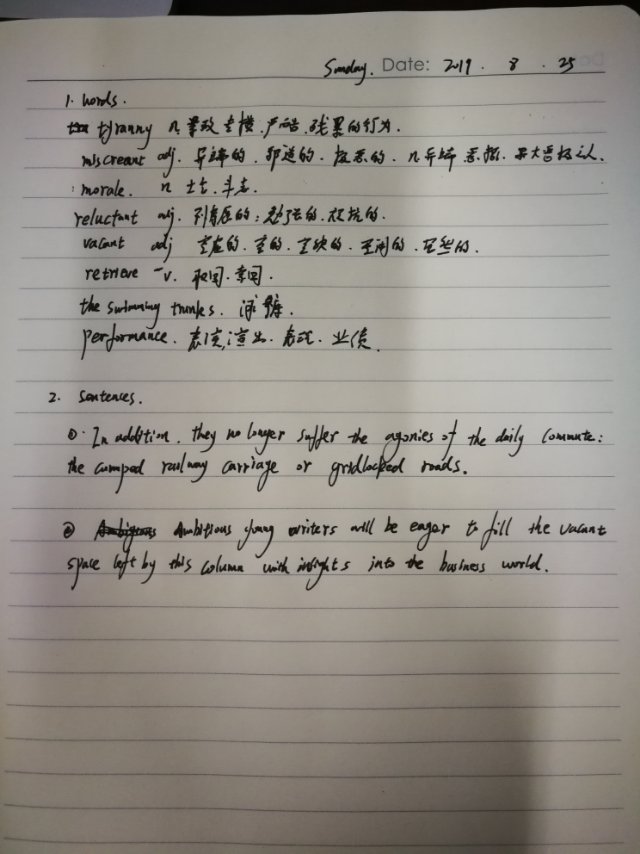 Sunday. Date: 2019 . 8 . 25
1. words.
tyranny n 暴政 专横. 严酷. 残暴的行为.
miscreant adj. 异端的. 邪道的. 极恶的. n 异端 恶棍.
morale. n 士气. 斗志.
reluctant adj. 不情愿的; 勉强的.
vacant adj 空虚的. 空的. 空缺的. 空闲的.
retrieve v. 取回.
the swimming trunks. 泳裤.
performance. 表演, 演出. 表现. 业绩.
2. Sentences.
① In addition, they no longer suffer the agonies of the daily commute:
the cramped railway carriage or gridlocked roads.
② Ambitious young writers will be eager to fill the vacant
space left by this column with insights into the business world.